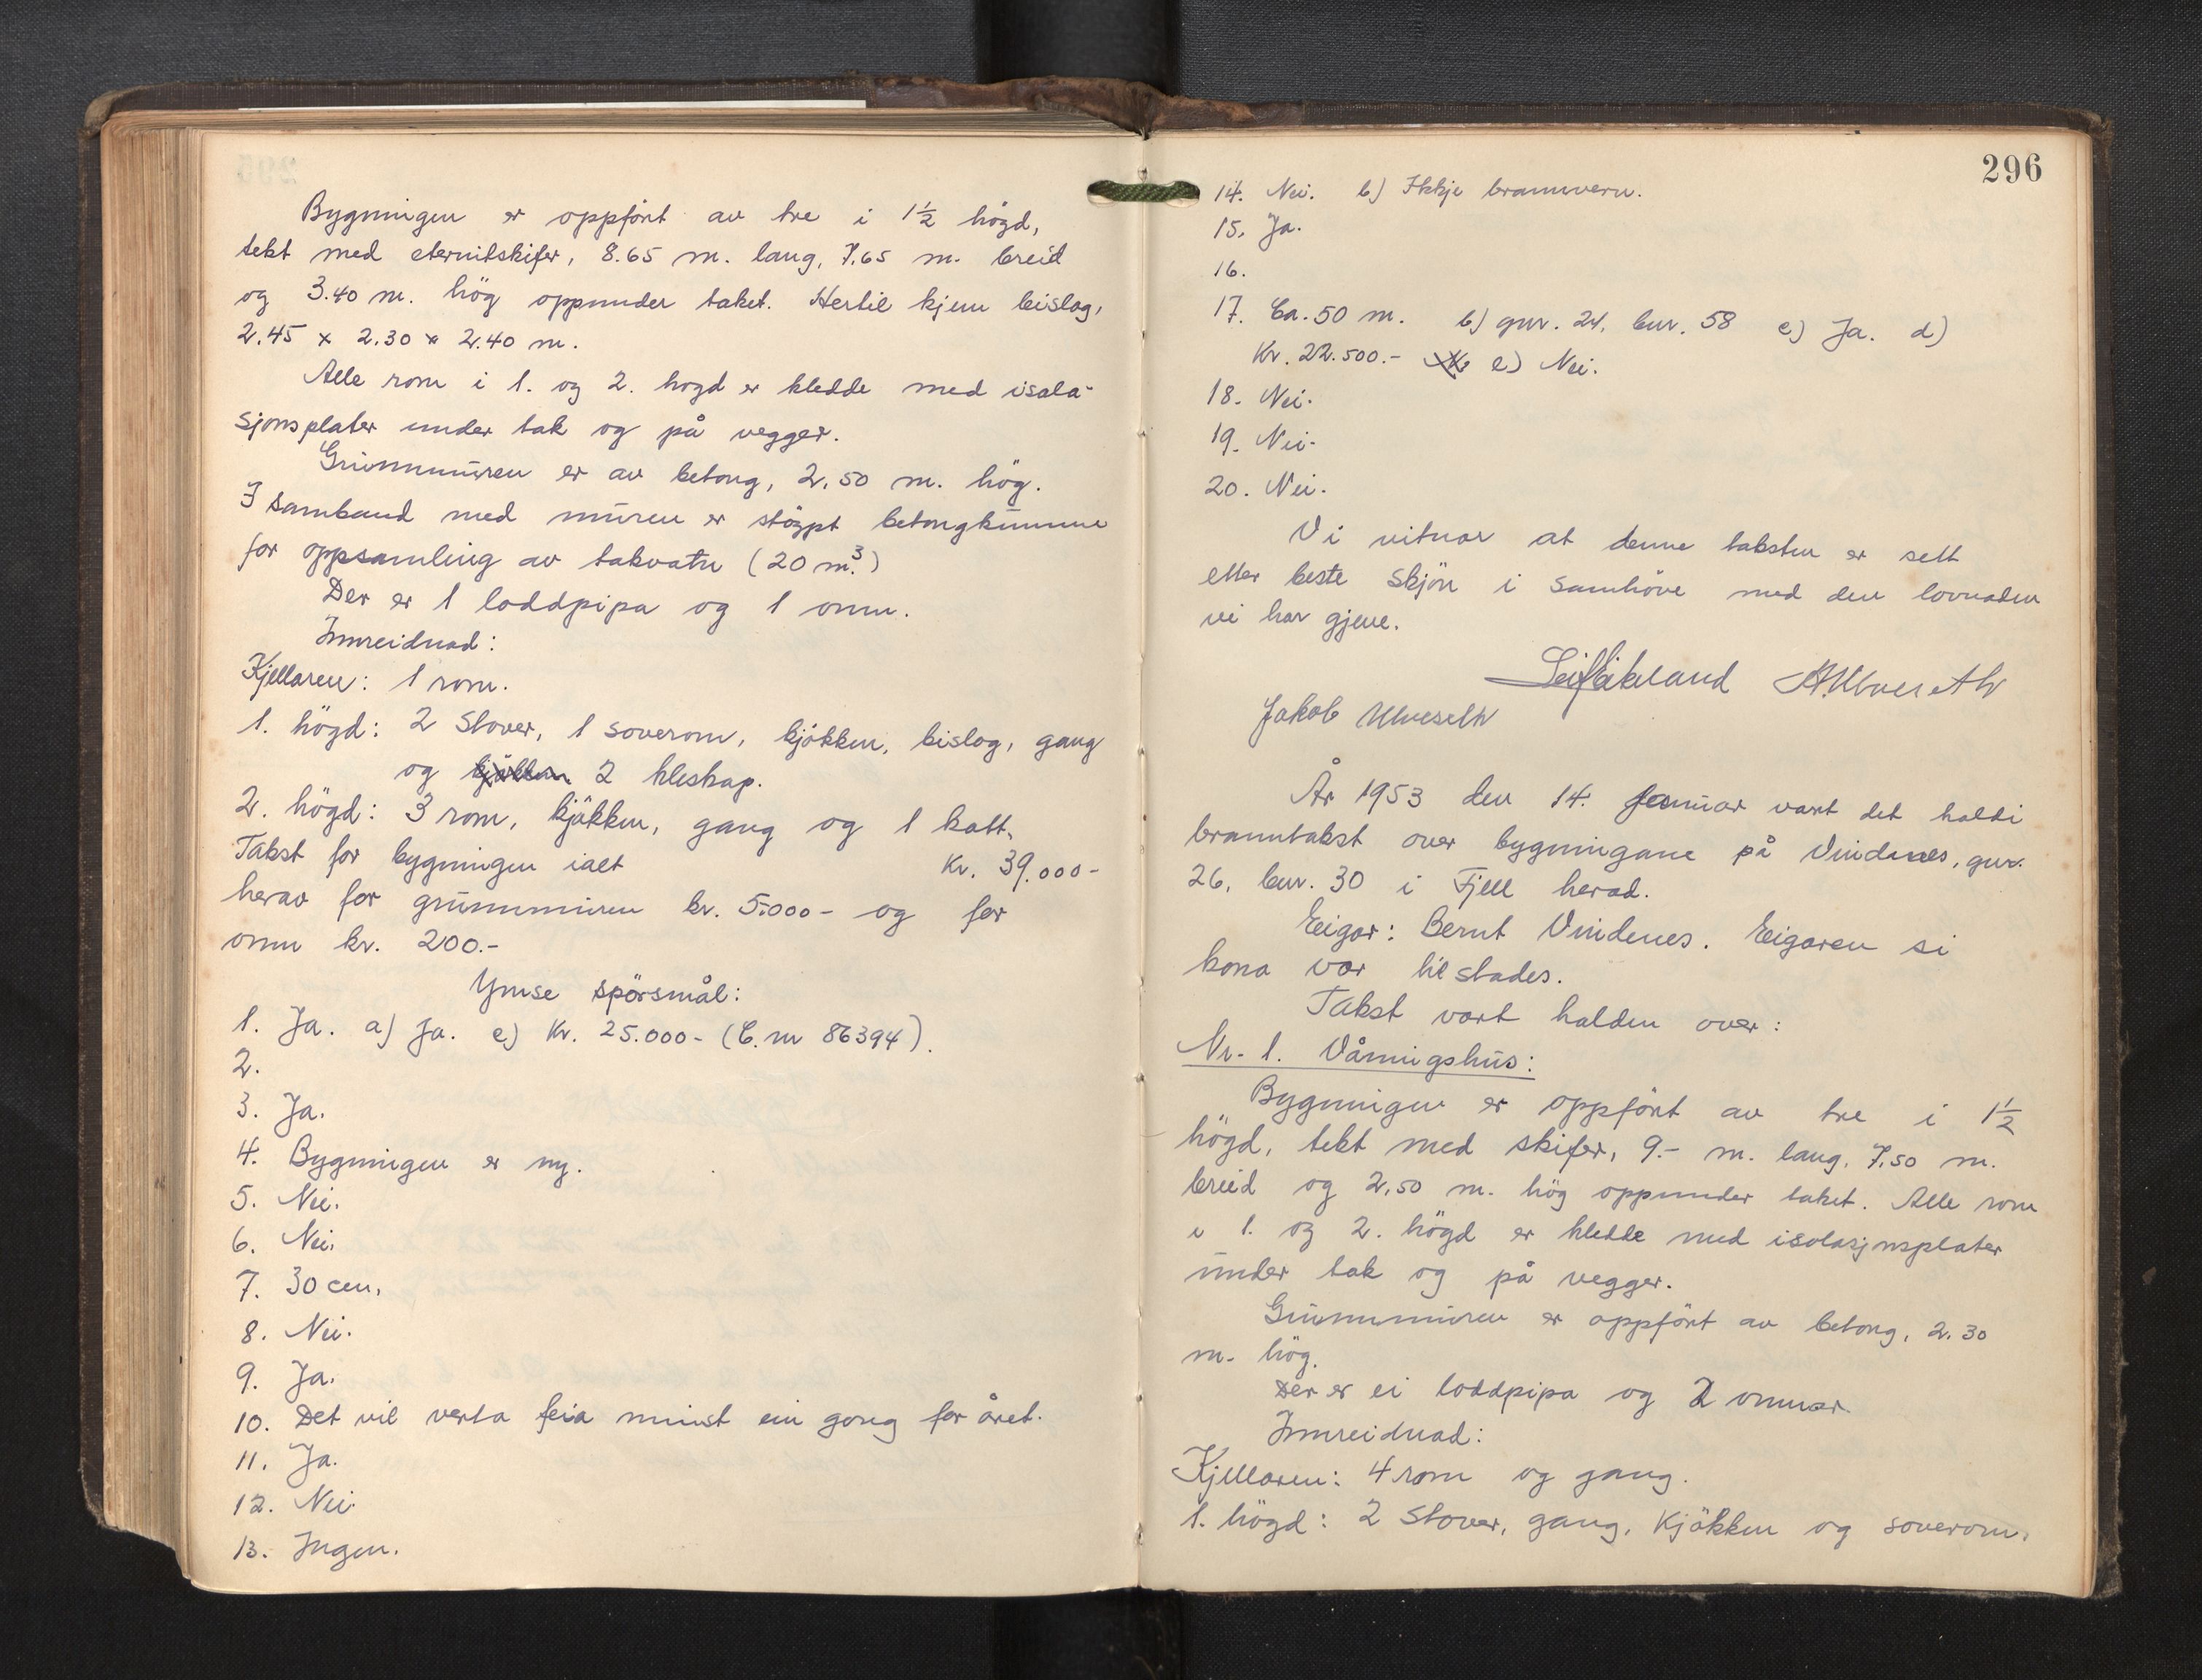 Bygningen er oppført av tre i 1½ högd,
tekt med eternitskifer, 8.65 m. lang, 7.65 m. breid
og 3.40 m. hög oppunder taket. Hertil kjem bislag,
2.45 x 2.30 x 2.40 m.
Alle rom i 1. og 2. hogd er kledde med isola-
sjonsplater under tak og på vegger.
Grunnmuren er av betong, 2.50 m. hög.
I samband med muren er stöypt betongkumme
for oppsamling av takvatn (20 m.³)
Der er 1 loddpipa og 1 omn.
Innreidnad:
Kjellaren: 1 rom.
1. högd: 2 stover, 1 soverom, kjökken, bislag, gang
og 2 kleskap.
2. högd: 3 rom, kjökken, gang og 1 kott.
Takst for bygningen ialt Kr. 39.000-
herav for grunnmuren kr. 5.000- og for
omn kr. 200.-
Ymse spörsmål:
1. Ja. a) Ja. e) Kr. 25.000- (C.m 86394).
2.
3. Ja.
4. Bygningen er ny.
5. Nei.
6. Nei.
7. 30 cm.
8. Nei.
9. Ja.
10. Det vil verta feia minst ein gong for året.
11. Ja.
12. Nei.
13. Ingen.
296
14. Nei. b) Ikkje brannvern.
15. Ja.
16.
17. Ca. 50 m. b) gnr. 24, bnr. 58 c) Ja. d)
Kr. 22.500.- e) Nei.
18. Nei.
19. Nei.
20. Nei.
Vi vitnar at denne taksten er sett
etter beste skjön i samhöve med den lovnaden
vi har gjeve.
Leif Eikeland A. Ulveseth
Jakob Ulveseth
År 1953 den 14. januar vart det haldi
branntakst over bygningane på Vindenes, gnr.
26, bnr. 30 i Fjell herad.
Eigar: Bernt Vindenes. Eigaren si
kona var til stades.
Takst vart halden over:
Nr. 1. Våningshus:
Bygningen er oppfört av tre i 1½
högd, tekt med skifer, 9.- m. lang, 7.50 m.
breid og 2.50 m. hög oppunder taket. Alle rom
i 1. og 2. högd er kledde med isolasjnsplater
under tak og på vegger.
Grunnmuren er oppfört av betong, 2.30
m. hög.
Der er ei loddpipa og 2 omnar.
Innreidnad:
Kjellaren: 4 rom og gang.
1. högd: 2 stover, gang, kjökken og soverom.